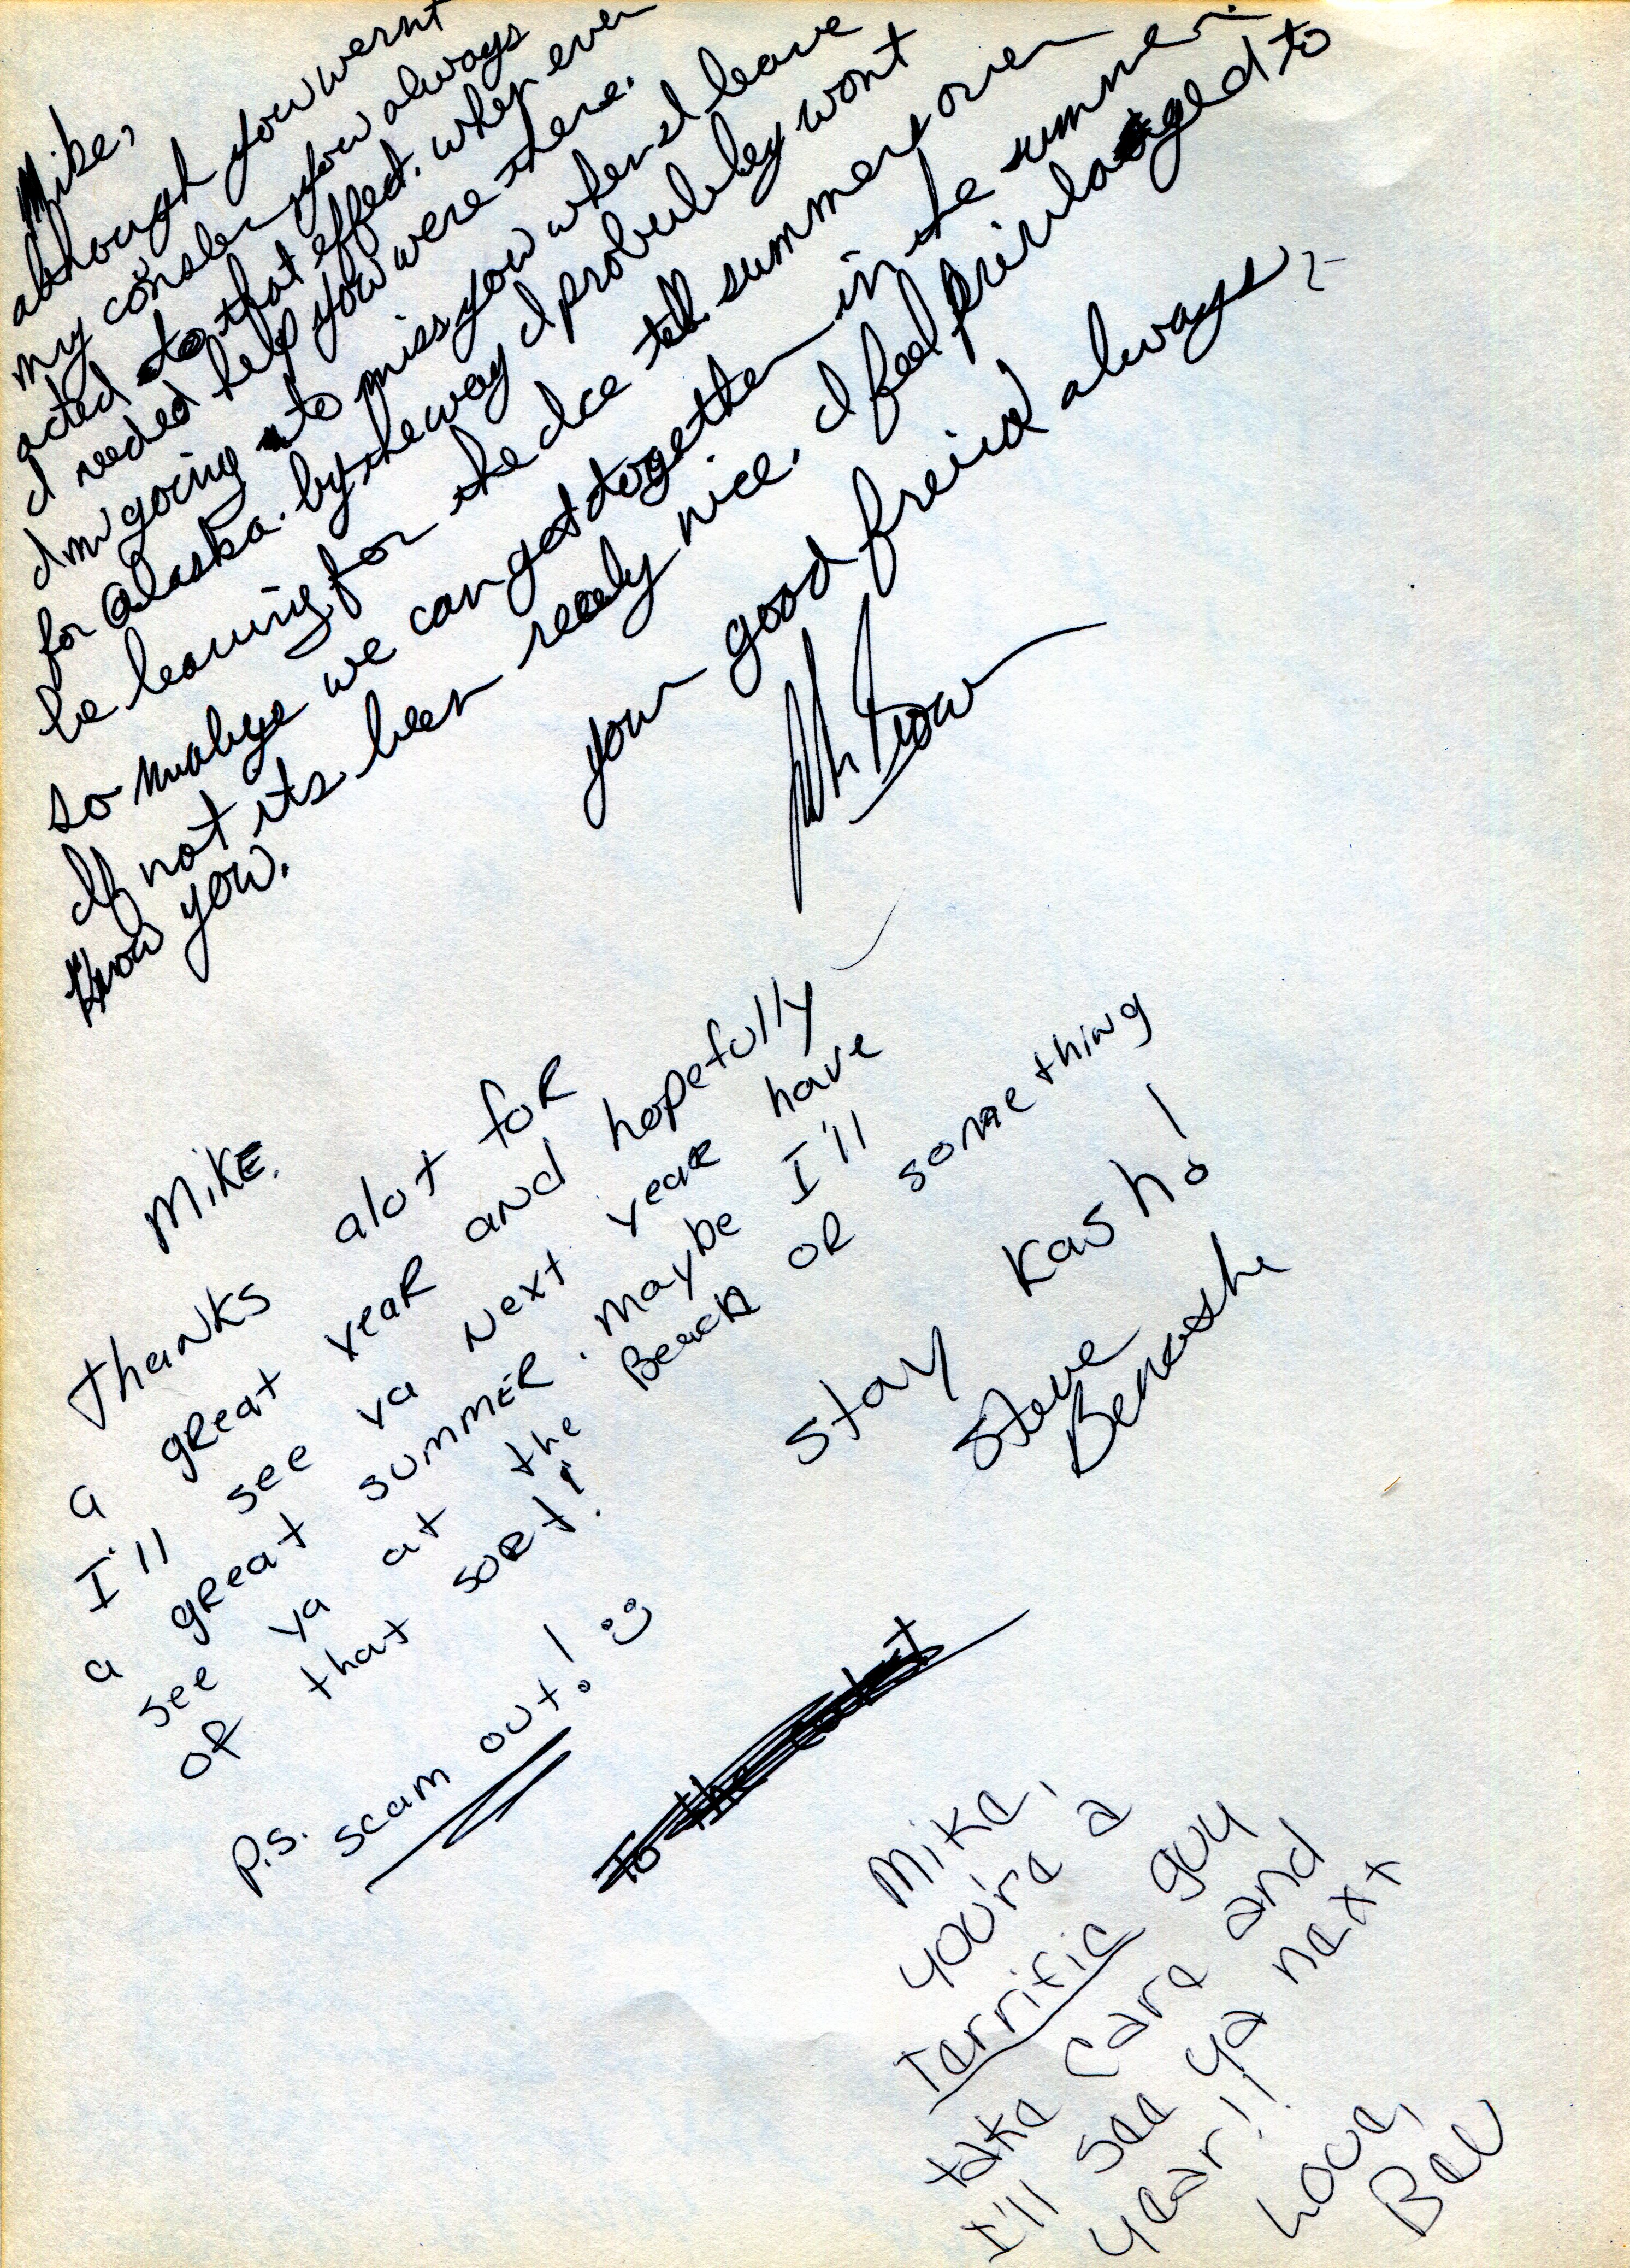 Mike,
although you wernt
my consler you always
acted to that effect. when ever
I needed help you were there.
Im going to miss you when I leave
for Alaska. by the way I probubley wont
be leaving for the Ice till summers over
so mabye we can get together in the summer.
If not its been realy nice. I feel privilaged to
know you.
your good freind always,
Mike.
thanks alot for
a great year and hopefully
I'll see ya next year have
a great summer. maybe I'll
see ya at the Beach or something
of that sort!
stay Kash!
Steve
Benoshe
P.S. scam out! :)
to the
Mike,
you're a
Terrific guy
take care and
I'll see ya next
year!!
Love,
Bev